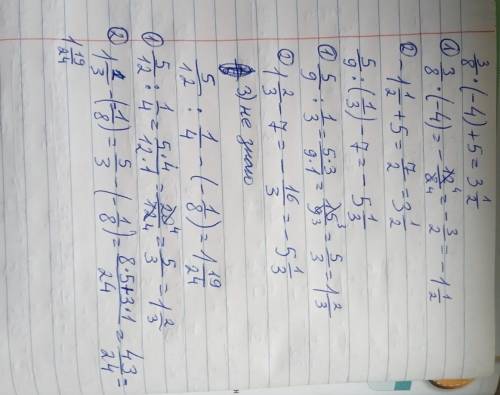 3/8 · (-4) + 5 = 3 1/2
① 3/8 · (-4) = -12/8 = -3/2 = -1 1/2
② -1 1/2 + 5 = 7/2 = 3 1/2
5/9 : (1/3) - 7 = -5 1/3
① 5/9 : 1/3 = 5·3/9·1 = 15/9 = 5/3 = 1 2/3
② 1 2/3 - 7 = -16/3 = -5 1/3
3) не знаю
5/12 : 1/4 - (-1/8) = 1 19/24
① 5/12 : 1/4 = 5·4/12·1 = 20/12 = 5/3 = 1 2/3
② 1 2/3 - (-1/8) = 5/3 - (-1/8) = 8·5+3·1/24 = 43/24 =
1 19/24